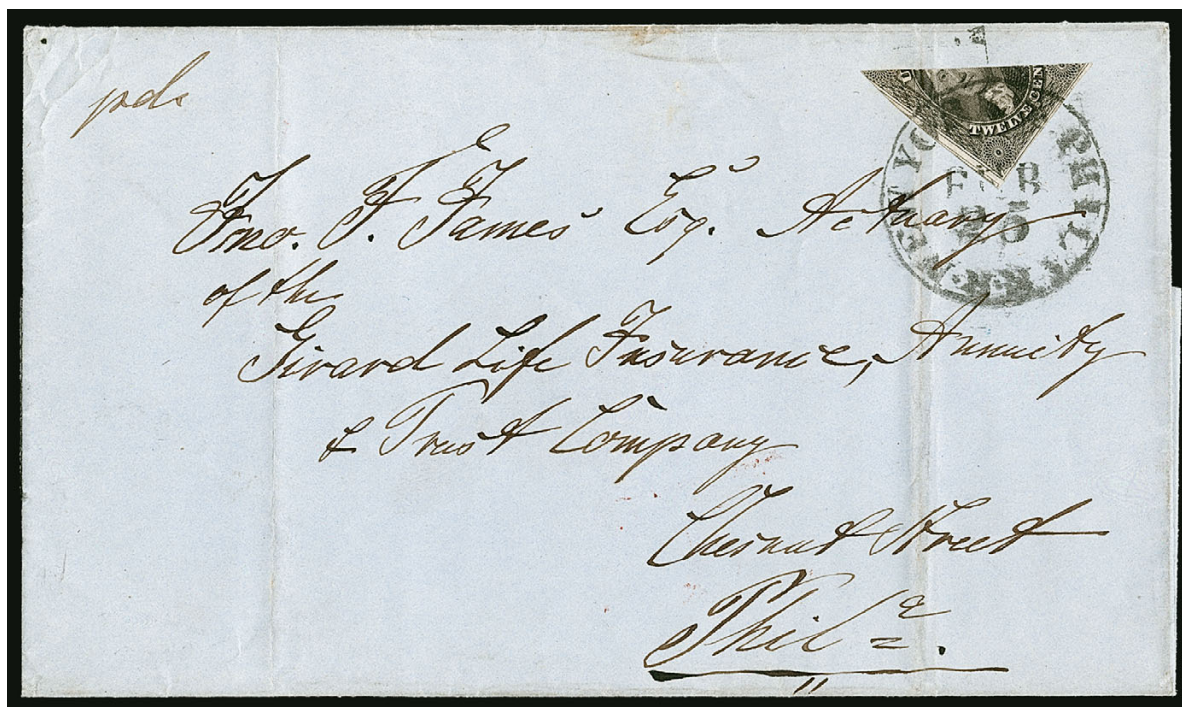 pd.
TWELVE CEN
NEW YO PHIL
R.R.
FEB
25
Jno. F. James Esqr. Actuary
of the
Girard Life Insurance, Annuity
& Trust Company
Chesnut Street
Phila.